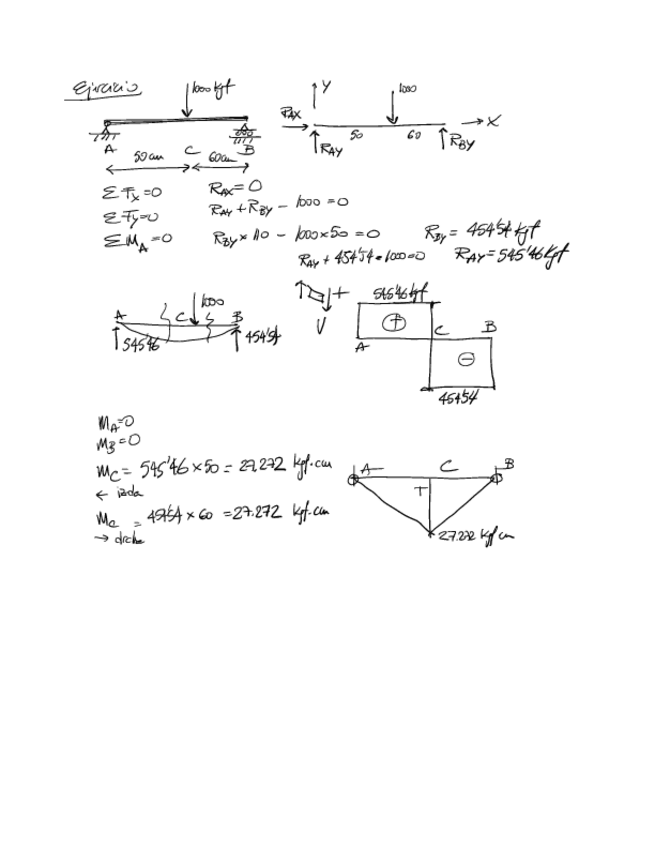 Ejercicio
1000 kgf
Y
1000
RAX
X
A
C
B
50
60
RAY
RBY
50 cm
60 cm
Σ Fx = 0
RAX = 0
Σ Fy = 0
RAY + RBY - 1000 = 0
Σ MA = 0
RBY × 110 - 1000 × 50 = 0
RBY = 454'54 kgf
RAY + 454'54 - 1000 = 0
RAY = 545'46 kgf
1000
A
C
B
545'46
454'54
+
V
545'46 kgf
+
A
C
B
-
454'54
MA = 0
MB = 0
MC = 545'46 × 50 = 27.272 kgf·cm
← izda
MC = 454'54 × 60 = 27.272 kgf·cm
→ drcha
A
C
B
27.272 kgf cm